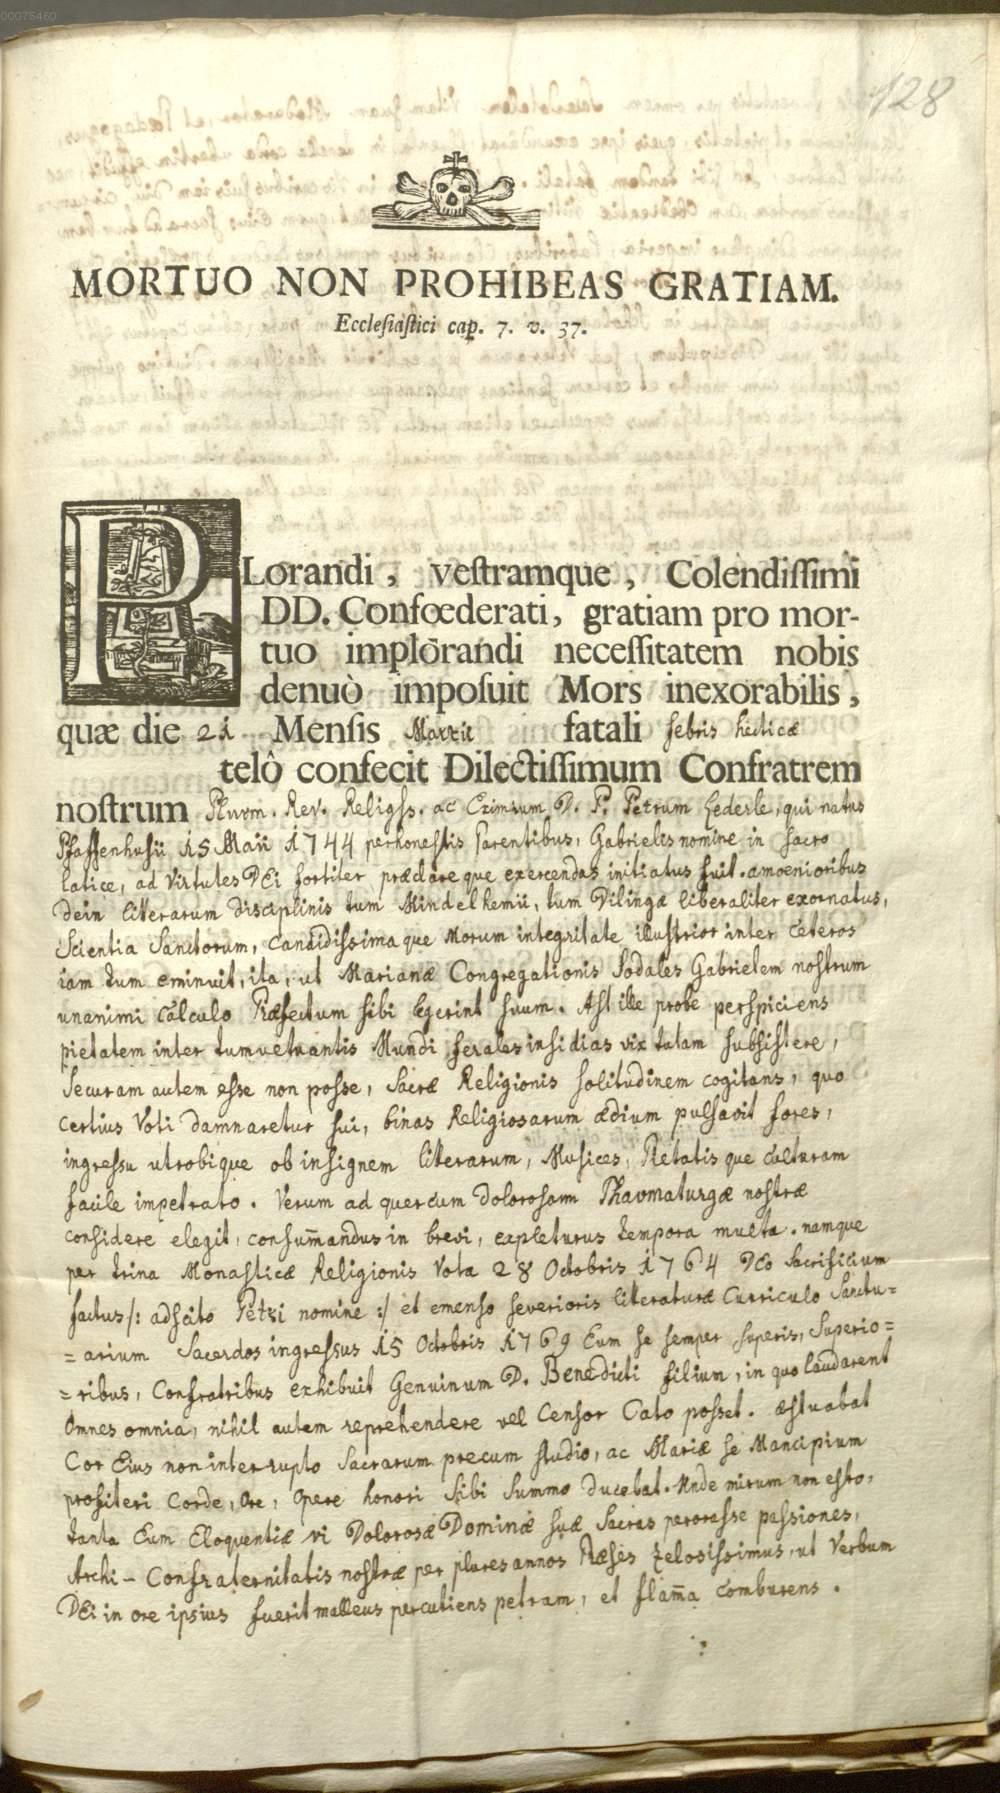 00075460
128
MORTUO NON PROHIBEAS GRATIAM.
Ecclesiastici cap. 7. v. 37.
PLorandi, vestramque, Colendissimi
DD. Confœderati, gratiam pro mor-
tuo implorandi necessitatem nobis
denuò imposuit Mors inexorabilis,
quæ die 21 Mensis Martii fatali febris hecticæ
telô confecit Dilectissimum Confratrem
nostrum Plurm. Rev. Religss. ac Eximium D. P. Petrum Lederle, qui natus
Pfaffenhusii 15 Maii 1744 perhonestis Parentibus, Gabrielis nomine in sacro
latice, ad Virtutes DEi fortiter præclareque exercendas initiatus fuit. amoenioribus
dein litterarum disciplinis tum Mindelhemii, tum Dilingæ liberaliter exornatus,
Scientia Sanctorum, candidissimaque Morum integritate illustrior inter Ceteros
iam tum eminuit, ita, ut Marianæ Congregationis Sodales Gabrielem nostrum
unanimi Calculo Præfectum sibi legerint suum. Ast ille probe perspiciens
pietatem inter tumultuantis Mundi ferales insidias vix tutam subsistere,
Securam autem esse non posse, Sacræ Religionis solitudinem cogitans, quo
certius Voti damnaretur sui, binas Religiosarum ædium pulsavit fores,
ingressu utrobique ob insignem litterarum, Musices, Pietatisque culturam
facile impetrato. Verum ad quercum dolorosam Thavmaturgæ nostræ
considere elegit, consum̄andus in brevi, expleturus tempora multa. namque
per trina Monasticæ Religionis Vota 28 Octobris 1764 DEo Sacrificium
factus /: adscito Petri nomine :/ et emenso severioris literaturæ Curriculo Sanctu=
=arium Sacerdos ingressus 15 Octobris 1769 Eum se semper superis, Superio=
=ribus, Confratribus exhibuit Genuinum D. Benedicti filium, in quo laudarent
Omnes omnia, nihil autem reprehendere vel Censor Cato posset. Æstuabat
Cor Eius non interrupto Sacrarum precum studio, ac Mariæ se Mancipium
profiteri Corde, Ore, Opere honori sibi summo ducebat. Unde mirum non esto,
tanta Eum Eloquentiæ vi Dolorosæ Dominæ suæ Sacras perorasse passiones,
Archi-Confraternitatis nostræ per plures annos Præses zelosissimus, ut Verbum
DEi in ore ipsius fuerit malleus percutiens petram, et flam̄a comburens.